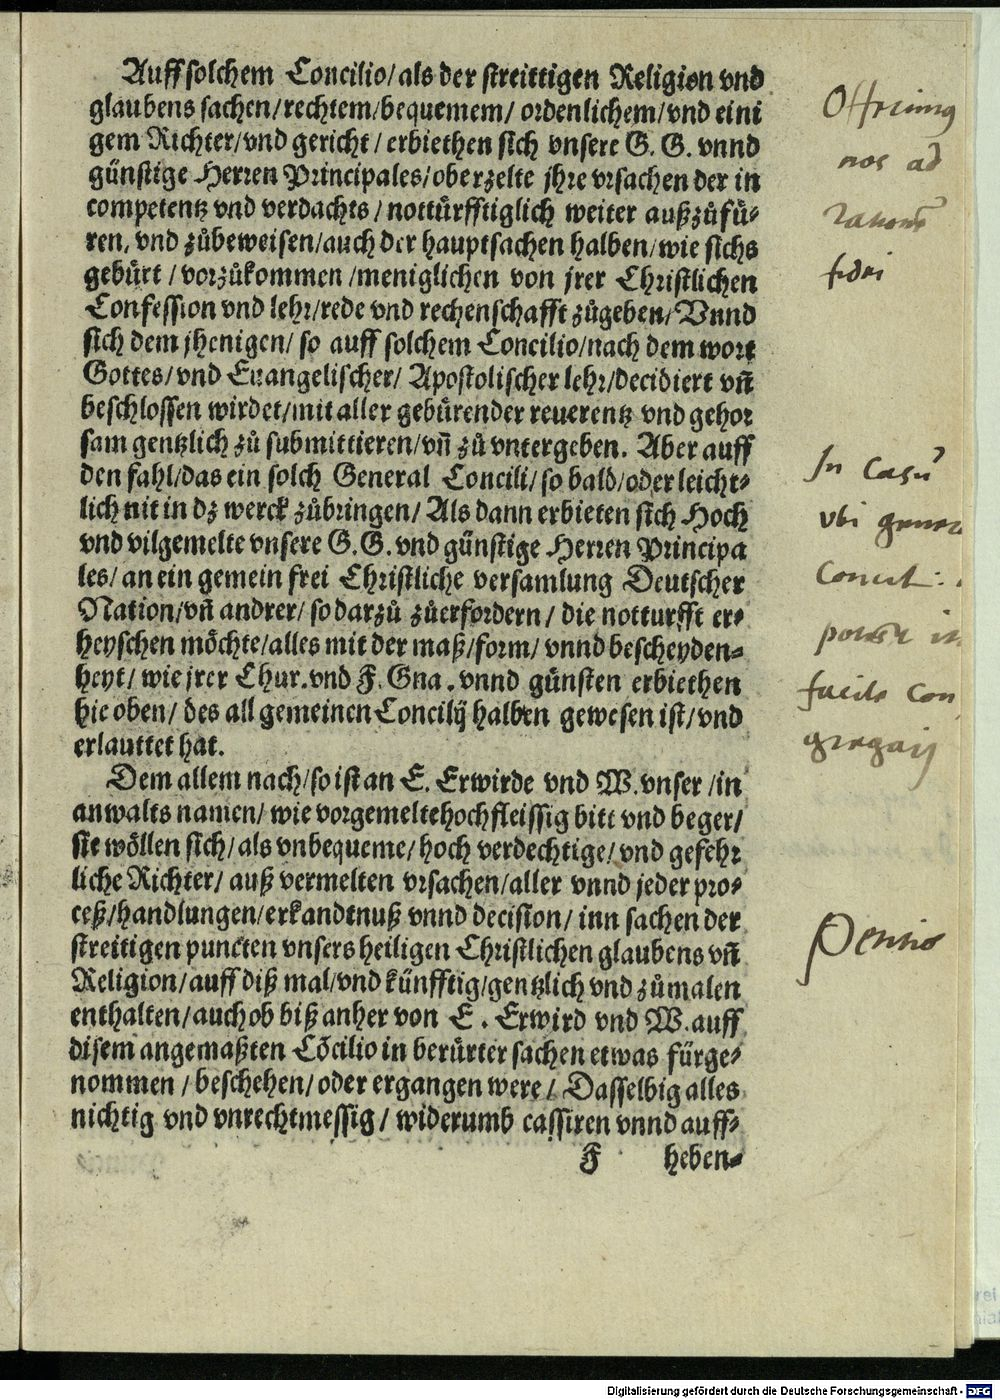 Auff solchem Concilio/ als der streittigen Religion vnd
glaubens sachen/ rechtem/ bequemem/ ordenlichem/ vnd eini
gem Richter/ vnd gericht/ erbiethen sich vnsere G. G. vnnd
günstige Herren Principales/ oberzelte jhre vrsachen der in
competentz vnd verdachts/ nottürfftiglich weiter außzůfü⸗
ren, vnd zůbeweisen/ auch der hauptsachen halben/ wie sichs
gebürt/ vorzůkommen/ meniglichen von jrer Christlichen
Confession vnd lehr/ rede vnd rechenschafft zůgeben/ Vnnd
sich dem jhenigen/ so auff solchem Concilio/ nach dem wort
Gottes/ vnd Euangelischer/ Apostolischer lehr/ decidiert vñ
beschlossen wirdet/ mit aller gebürender reuerentz vnd gehor
sam gentzlich zů submittieren/ vñ zů vntergeben. Aber auff
den fahl/ das ein solch General Concili/ so bald/ oder leicht⸗
lich nit in dz werck zůbringen/ Als dann erbieten sich Hoch
vnd vilgemelte vnsere G. G. vnd günstige Herren Principa
les/ an ein gemein frei Christliche versamlung Deutscher
Nation/ vñ andrer/ so darzů zůerfordern/ die notturfft er⸗
heyschen möchte/ alles mit der maß/ form/ vnnd bescheyden⸗
heyt/ wie jrer Chur. vnd F. Gna. vnnd günsten erbiethen
hie oben/ des allgemeinen Concilij halben gewesen ist/ vnd
erlauttet hat.
Dem allem nach/ so ist an E. Erwirde vnd W. vnser/ in
anwalts namen/ wie vorgemelte hochfleissig bitt vnd beger/
sie wöllen sich/ als vnbequeme/ hoch verdechtige/ vnd gefehr
liche Richter/ auß vermelten vrsachen/ aller vnnd jeder pro⸗
ceß/ handlungen/ erkandtnuß vnnd decision/ inn sachen der
streitigen puncten vnsers heiligen Christlichen glaubens vñ
Religion/ auff diß mal/ vnd künfftig/ gentzlich vnd zůmalen
enthalten/ auch ob biß anher von E. Erwird vnd W. auff
disem angemaßten Cõcilio in berürter sachen etwas fürge⸗
nommen/ beschehen/ oder ergangen were/ Dasselbig alles
nichtig vnd vnrechtmessig/ widerumb cassiren vnnd auff⸗
F heben⸗
Offerimus
nos ad
rationẽ
fidei
In casu
vbi genera
Concil:
facile con
gregarj
Petitio
Digitalisierung gefördert durch die Deutsche Forschungsgemeinschaft - DFG